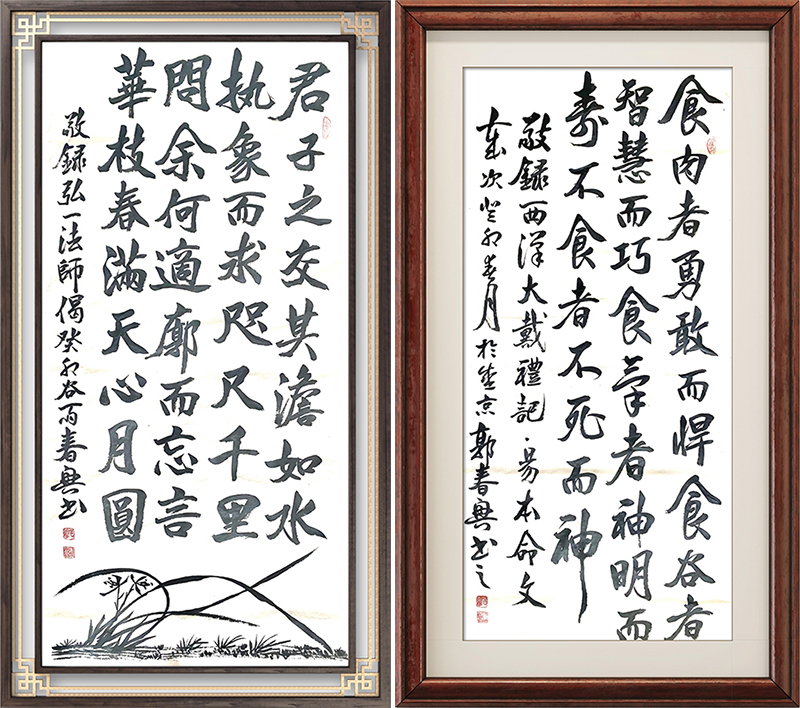 君子之交其澹如水
执象而求咫尺千里
問余何適廓而忘言
華枝春滿天心月圓
敬録弘一法師偈癸卯谷雨春興书
食肉者勇敢而悍食谷者
智慧而巧食氣者神明而
寿不食者不死而神
敬録西漢大戴禮記·易本命文
歲次癸卯春月於燕京郭春興书之